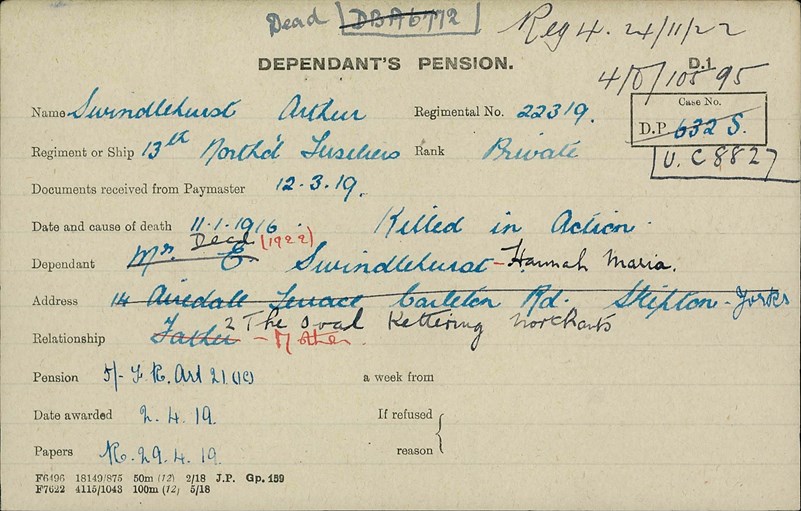 Dead DBA6772
Reg 4. 24/11/22
DEPENDANT'S PENSION.
D.1
4/D/105 95
Name Swindlehurst Arthur Regimental No. 22319.
Case No.
D.P 632 S.
U.C 8827
Regiment or Ship 13th North'd Fusiliers Rank Private
Documents received from Paymaster 12.3.19.
Date and cause of death 11.1.1916. Killed in Action.
Dead (1922)
Dependant Mr. E Swindlehurst - Hannah Maria.
Address 14 Airedale Terrace Carleton Rd. Skipton - Yorks
2 The Oval Kettering Northants
Relationship Father - Mother.
Pension 5/- F.R. Art 21 (1C) a week from
Date awarded 2.4.19. If refused
Papers R.29.4.19. reason
F6496 18149/875 50m (12) 2/18 J.P. Gp. 159
F7622 4115/1043 100m (12) 5/18